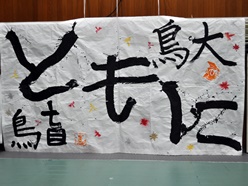 鳥大
ともに
鳥盲